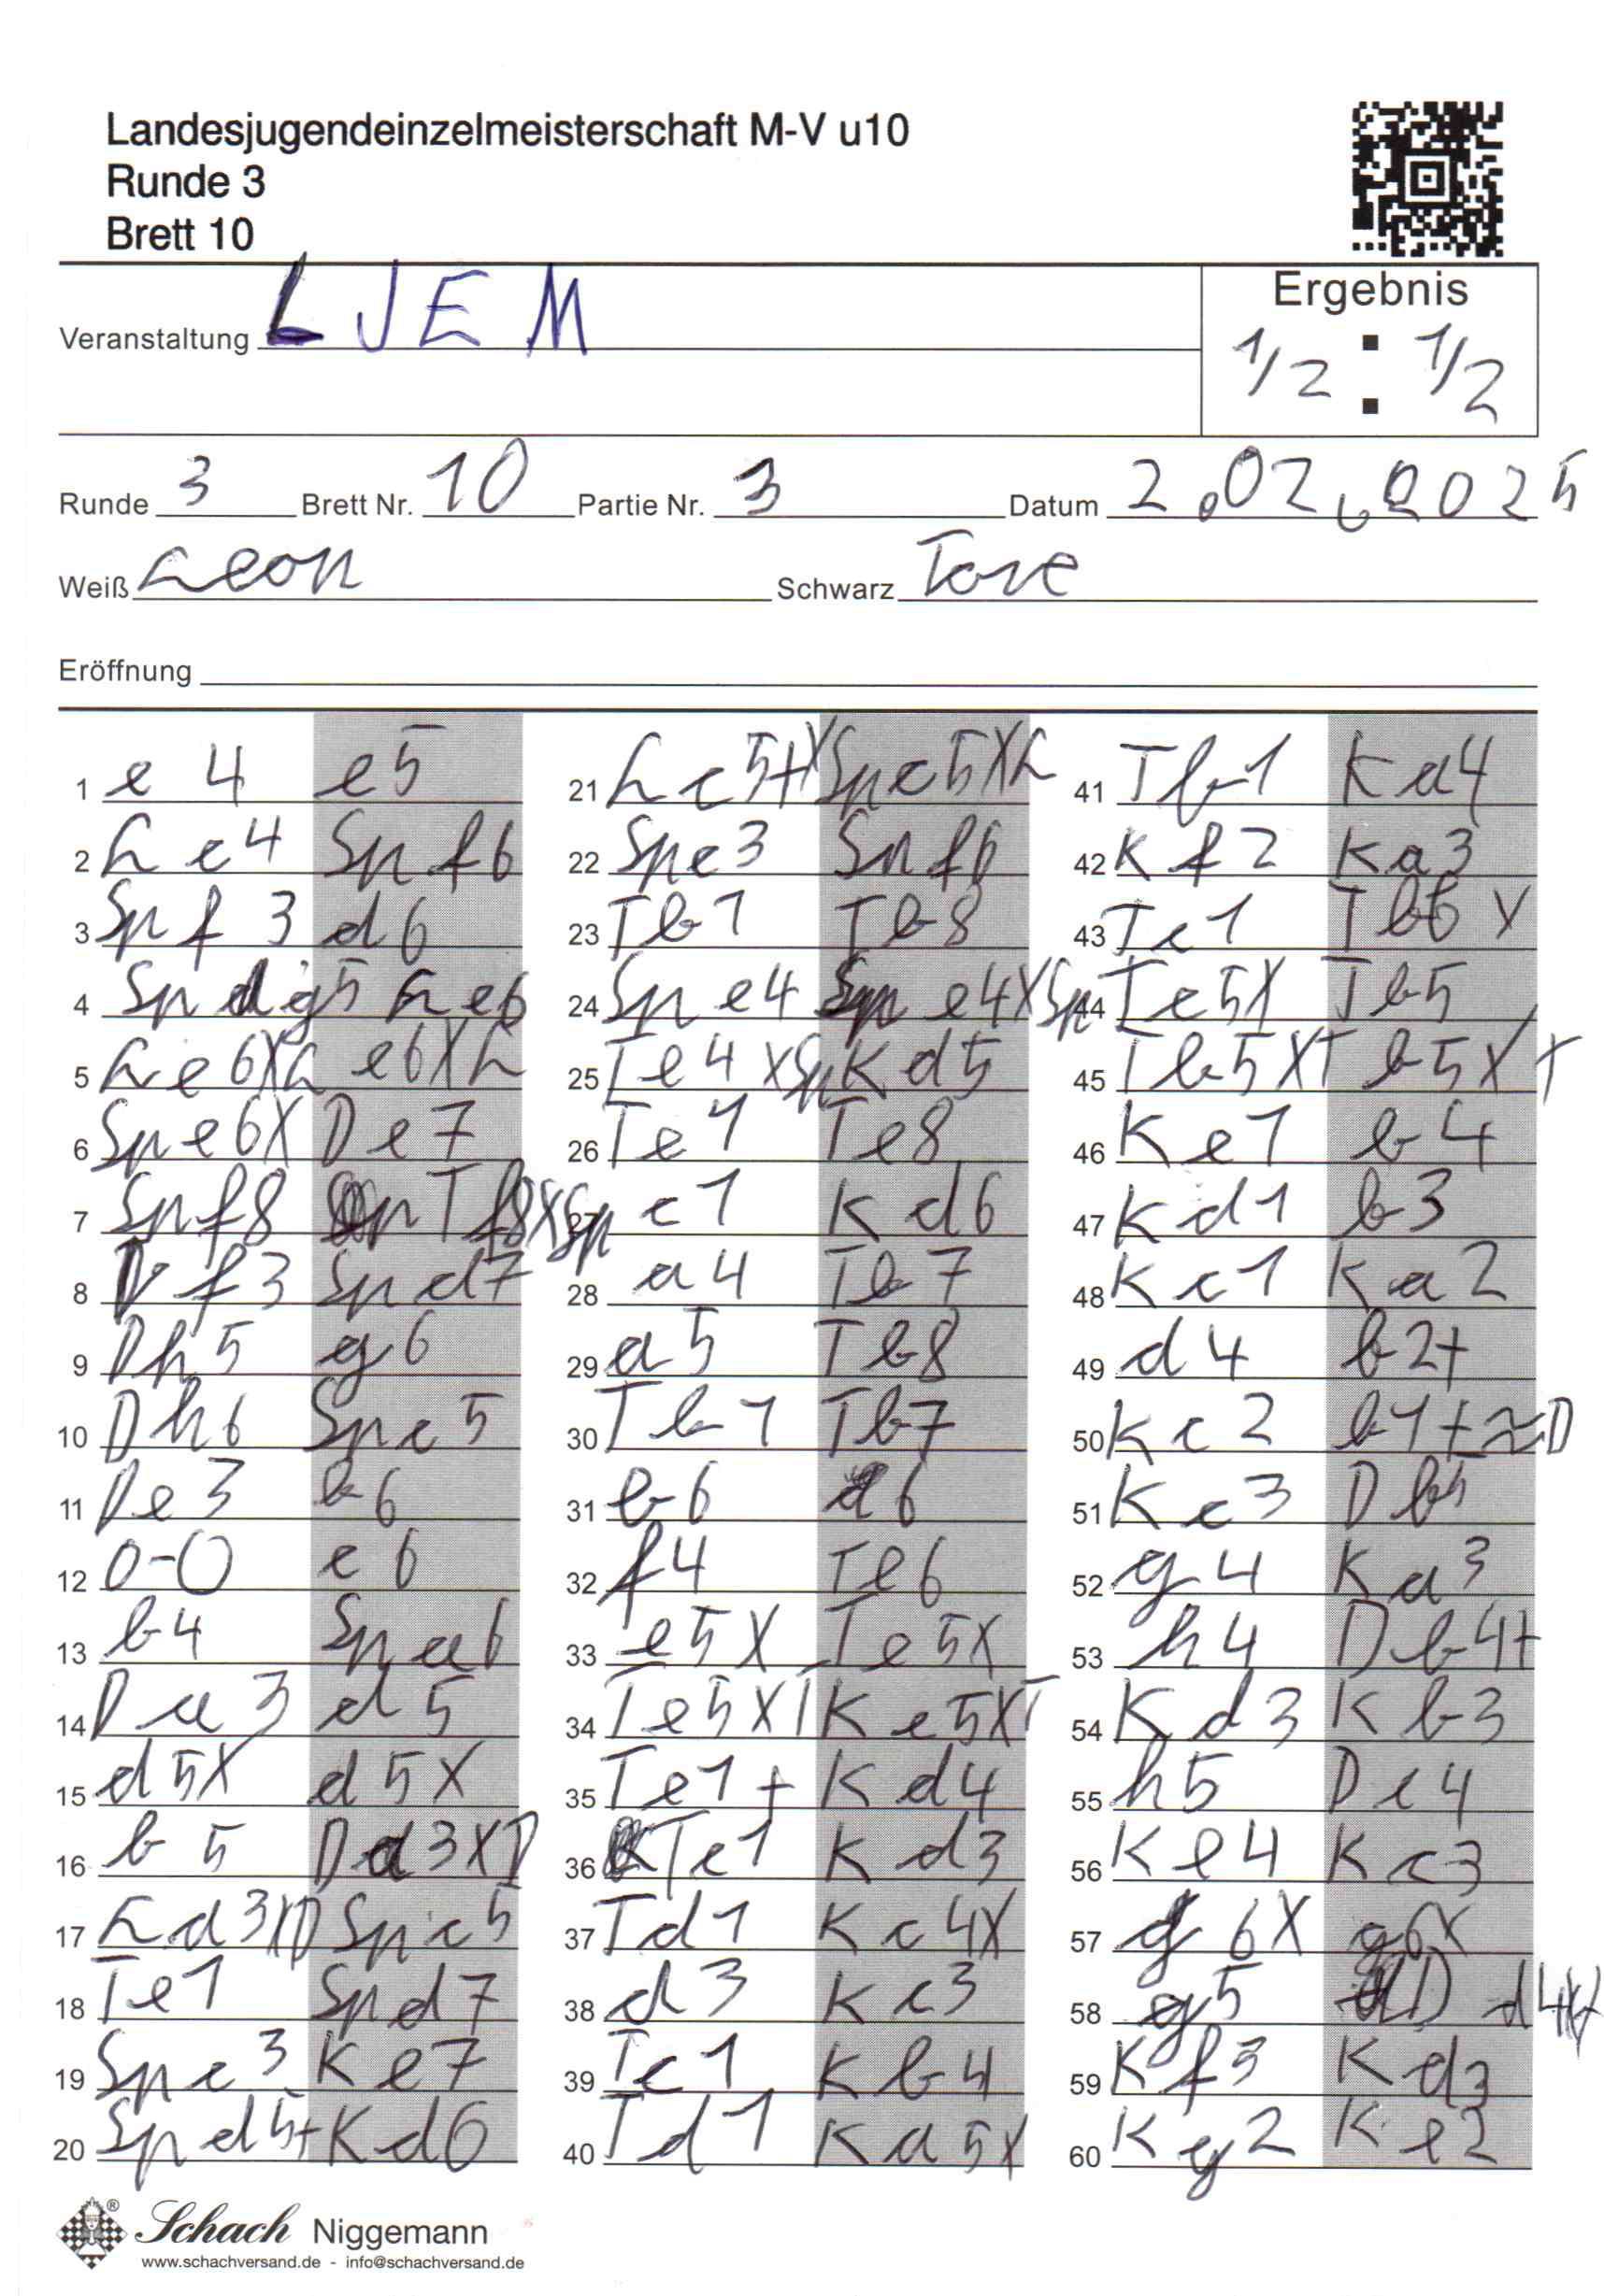 Landesjugendeinzelmeisterschaft M-V u10
Runde 3
Brett 10
Veranstaltung LJEM
Ergebnis
1/2 : 1/2
Runde 3 Brett Nr. 10 Partie Nr. 3 Datum 2.02.2025
Weiß Leon Schwarz Tore
Eröffnung
1 e4 e5
2 Lc4 Spf6
3 Spf3 d6
4 Spg5 Le6
5 Le6XL e6XL
6 Spe6X De7
7 Spf8 Tf8XSp
8 Df3 Spd7
9 Dh5 g6
10 Dh6 Spc5
11 De3 b6
12 0-0 c6
13 b4 Spa6
14 Da3 d5
15 d5X d5X
16 b5 Da3XD
17 Ld3XD Spc5
18 Te1 Spd7
19 Spc3 Ke7
20 Spd5+ Kd6
21 Lc5+X Spc5XL
22 Spe3 Spf6
23 Tb1 Tb8
24 Spe4 Spe4XSp
25 Te4XSp Kd5
26 Te1 Te8
27 c1 Kd6
28 a4 Tb7
29 a5 Tb8
30 Tb1 Tb7
31 b6 a6
32 f4 Te6
33 e5X Te5X
34 Te5XT Ke5XT
35 Te1+ Kd4
36 Tc1 Kd3
37 Td1 Kc4X
38 d3 Kc3
39 Tc1 Kb4
40 Td1 Ka5X
41 Tb1 Ka4
42 Kf2 Ka3
43 Tc1 Tb6X
44 Tc5X Tb5
45 Tb5XT b5XT
46 Ke1 b4
47 Kd1 b3
48 Kc1 Ka2
49 d4 b2+
50 Kc2 b1+≈D
51 Kc3 Db5
52 g4 Ka3
53 h4 Db4+
54 Kd3 Kb3
55 h5 Dc4
56 Ke4 Kc3
57 g6X g6X
58 g5 Dd4X
59 Kf3 Kd3
60 Kg2 Ke2
Schach Niggemann
www.schachversand.de - info@schachversand.de